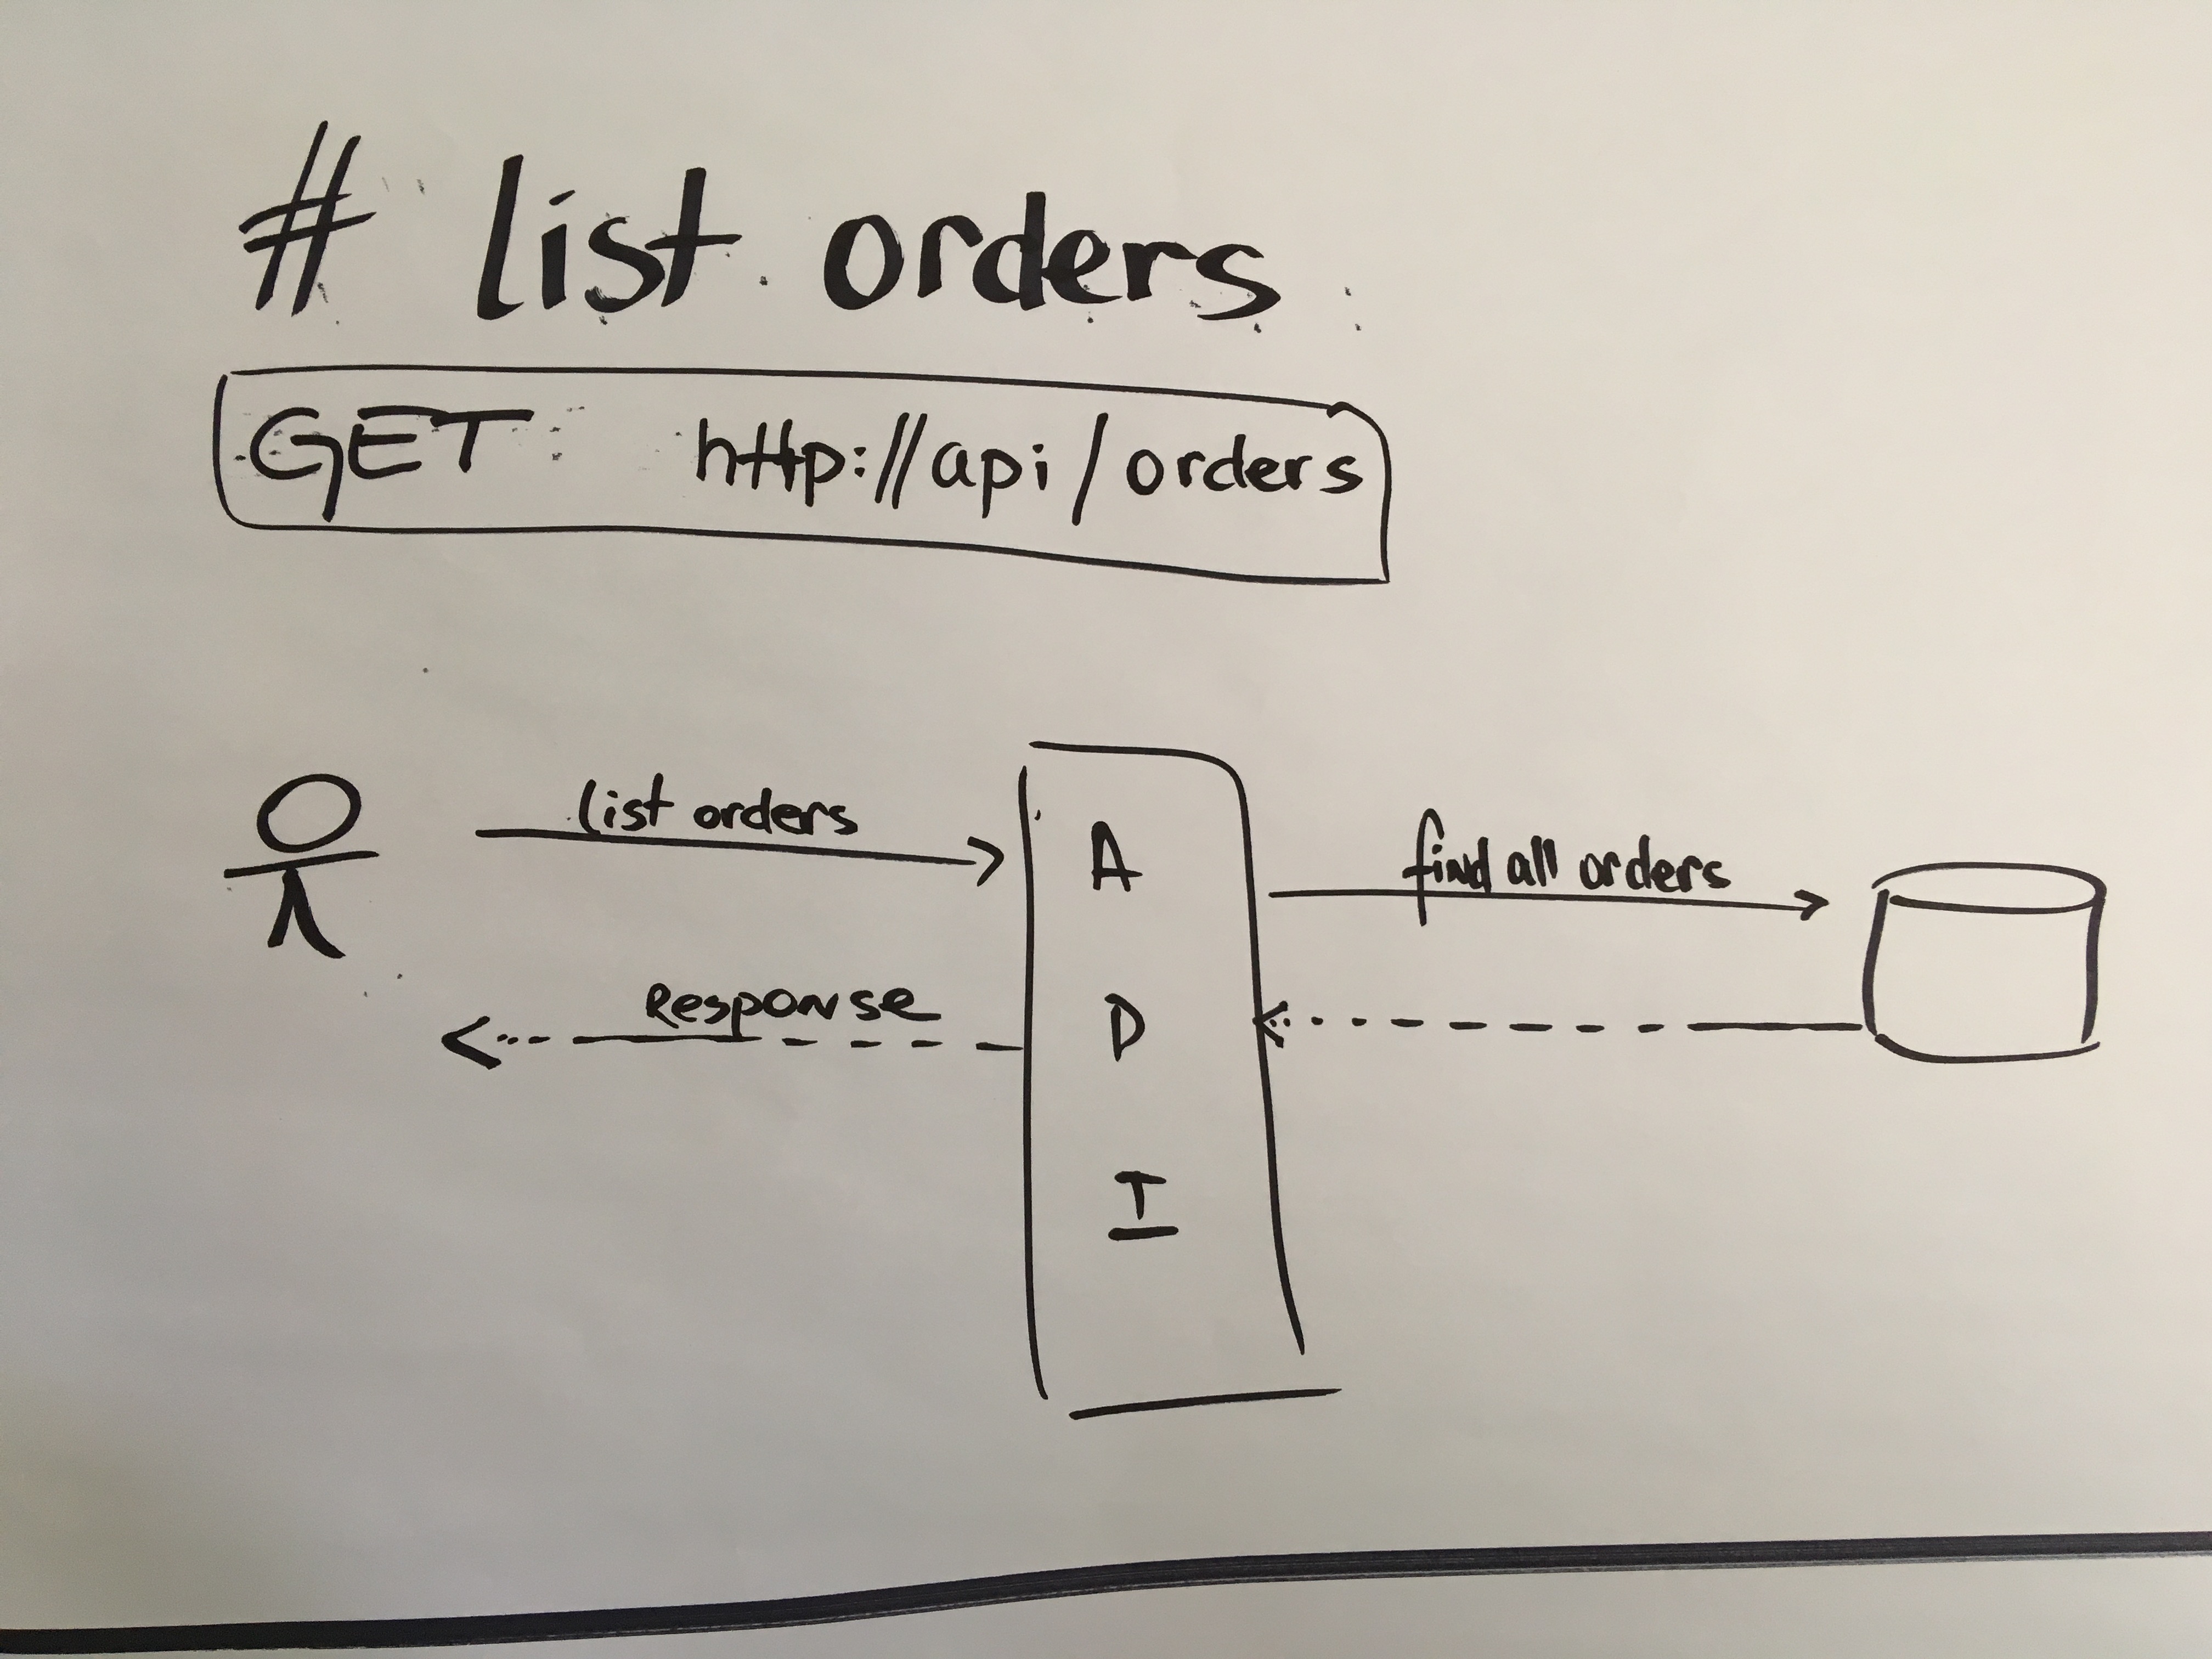 # list orders
GET http://api/orders
list orders
find all orders
Response
A
P
I